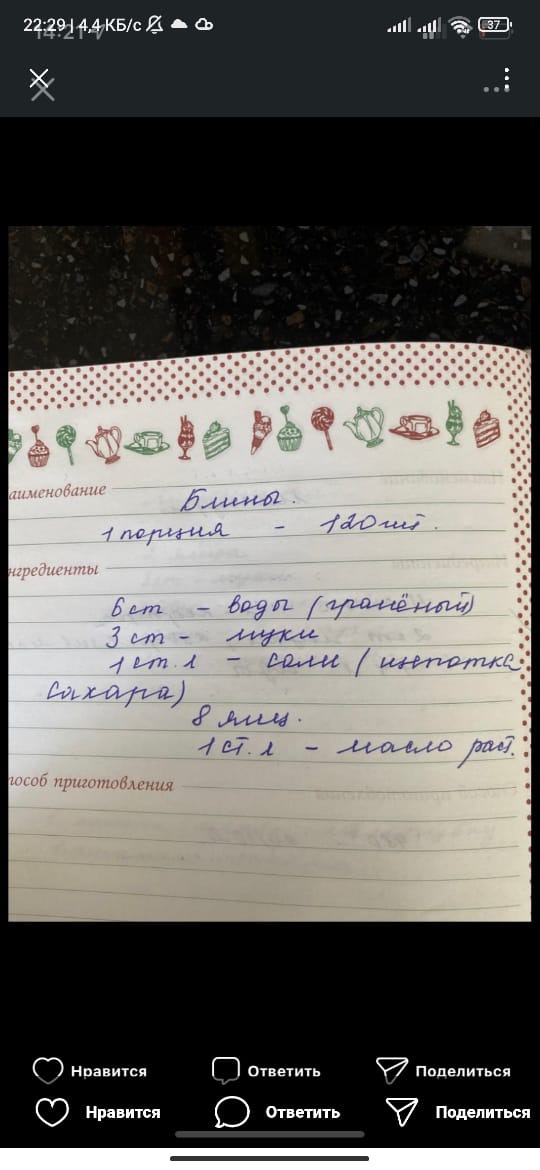 22:29 | 4,4 КБ/с
37
14:21
аименование
Блины.
1 порция - 120 шт.
нгредиенты
6 ст - воды (гранёный)
3 ст - муки
1 ст. л - соли (щепотка
сахара)
8 яиц.
1 ст. л - масло раст.
пособ приготовления
Нравится
Ответить
Поделиться
Нравится
Ответить
Поделиться